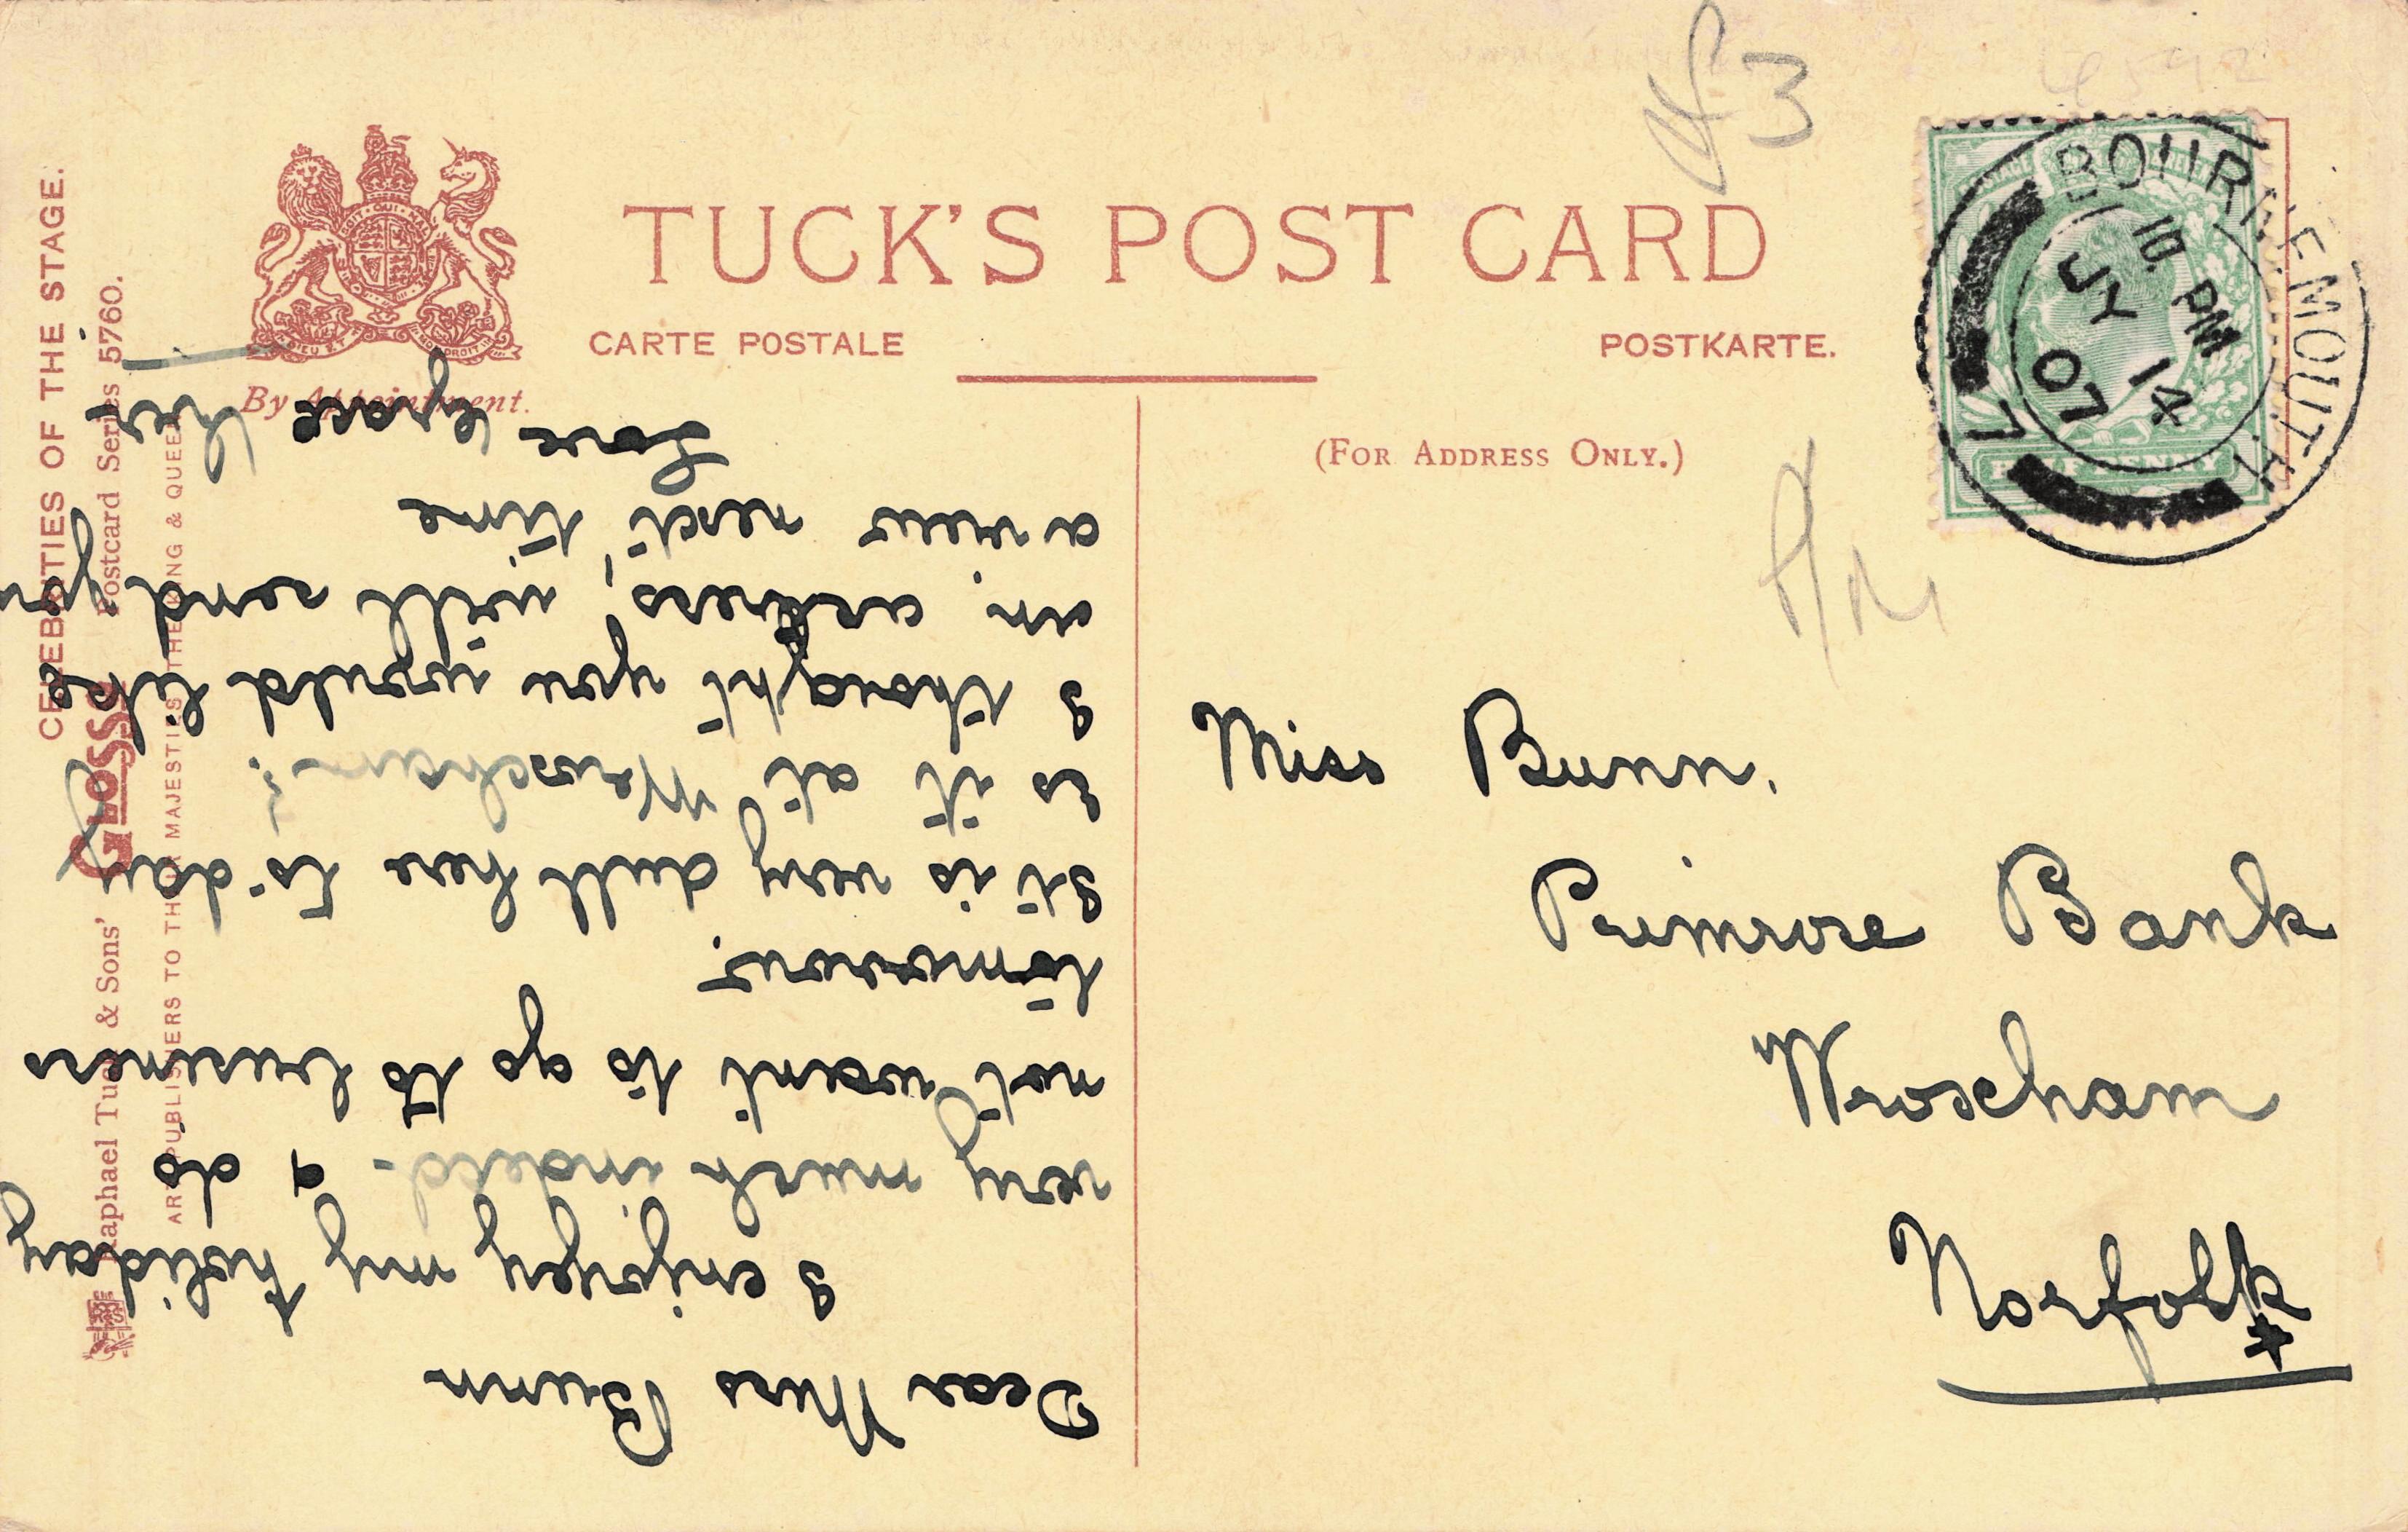 TUCK'S POST CARD
CARTE POSTALE
POSTKARTE.
By Appointment.
(FOR ADDRESS ONLY.)
£3
BOURNEMOUTH
10. PM
JY 14
07
7
HALFPENNY
CELEBRITIES OF THE STAGE.
Raphael Tuck & Sons' GLOSSO Postcard Series 5760.
ART PUBLISHERS TO THEIR MAJESTIES THE KING & QUEEN
Dear Miss Bunn
I enjoyey my holiday
very much indeed. I do
not want to go to business
tomorrow.
It is very dull here to-day
Is it at Wroxham?
I thought you would like
an actress, will send you
a view next time
Love Grace
Miss Bunn.
Primrose Bank
Wroxham
Norfolk